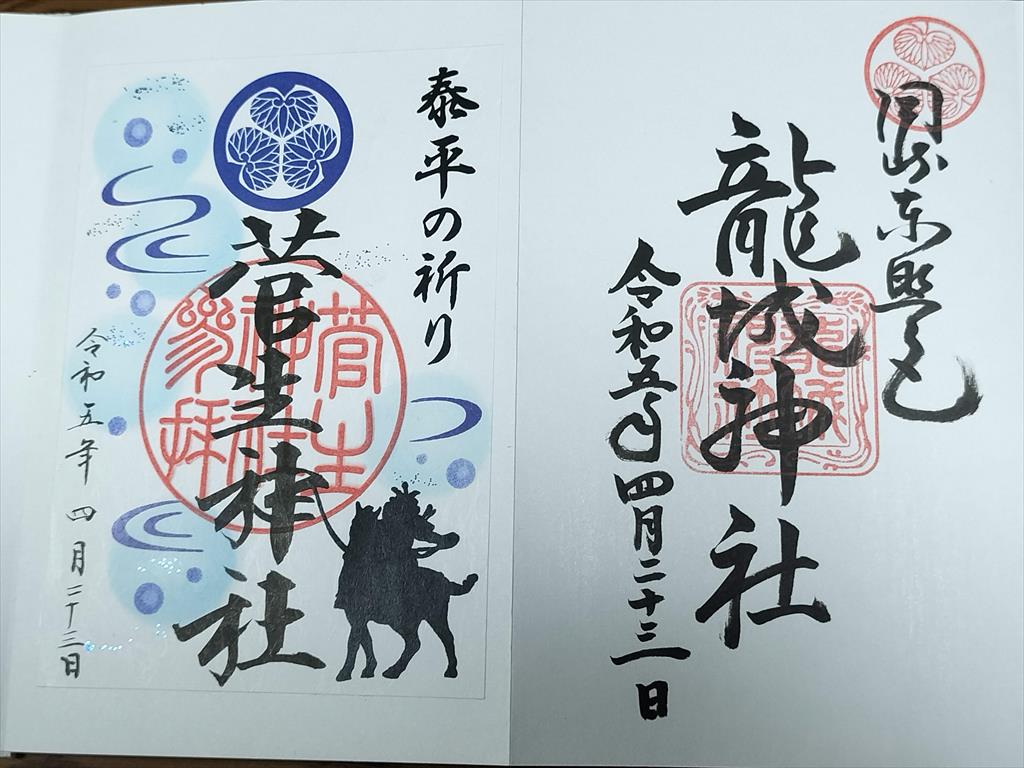 岡崎東照宮
龍城神社
令和五年四月二十三日
泰平の祈り
菅生神社
菅生
神社
參拝
令和五年 四月二十三日